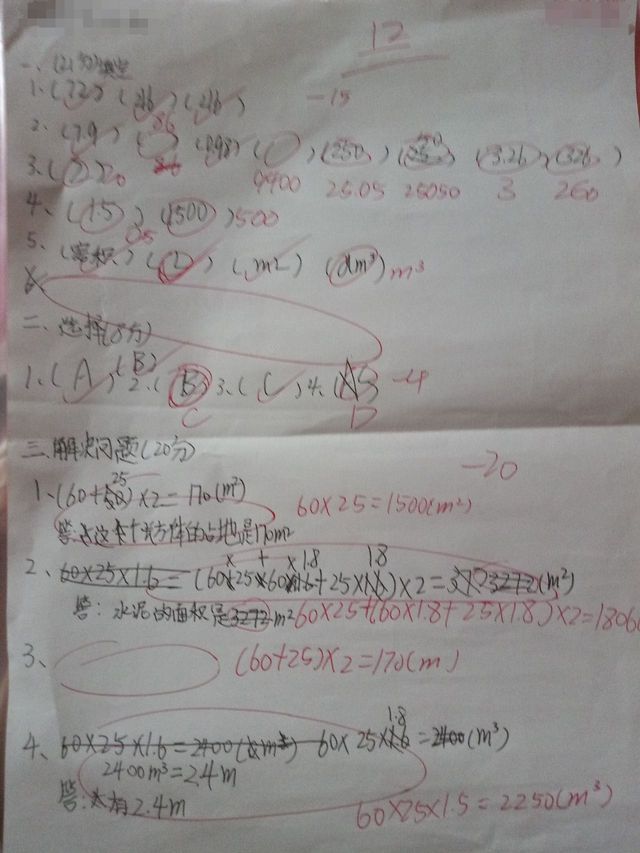 12
一、(21分)填空
1.(72)(216)(216) -15
86
2.(7.9)( )(898)( )(250)( )(3.26)(326)
3.(2)20 86 9400 2505 25050 3 260
4.(1.5)(1500)500
05
5.(容积)(L)(m2)(dm³)m³
二、选择(8分)
1.(A)(B)2.(B)3.(C)4.( )-4
C D
三、解决问题(20分) -20
25
1、(60+50)×2=170(m²) 60×25=1500(m²)
答:这个长方体的占地是170m2
× + ×1.8 18
2、60×25×1.6=(60×25×60×1.6+25×1.6)×2=3272(m²)
答:水泥的面积是3272m2 60×25+(60×1.8+25×1.8)×2=1806
3、 (60+25)×2=170(m)
1.8
4、60×25×1.6=2400(m³) 60×25×1.6=2400(m³)
2400m³=2.4m
答:有2.4m
60×25×1.5=2250(m³)